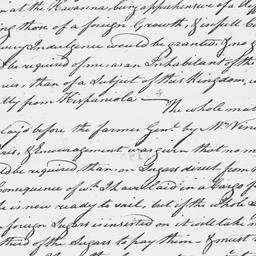 n at the Havanna, being apprehensive of a diff
ing those of a foreign Growth, & in full Co
every Indulgence would be granted, & no g
d be required of me as an Inhabitant of the
ries, than of a Subject of this Kingdom, i
tly from Hispaniola —
The whole mat
laid before the former Genl. by Mr. Vine
ris, & Encouragement was given that no m
ld be required than on Sugars direct from t
Consequence of wh. I have laid in a Cargo f
e is now ready to sail, but if the whole D
n foreign Sugars is insisted on it will take n
third of the Sugars to pay them — & must